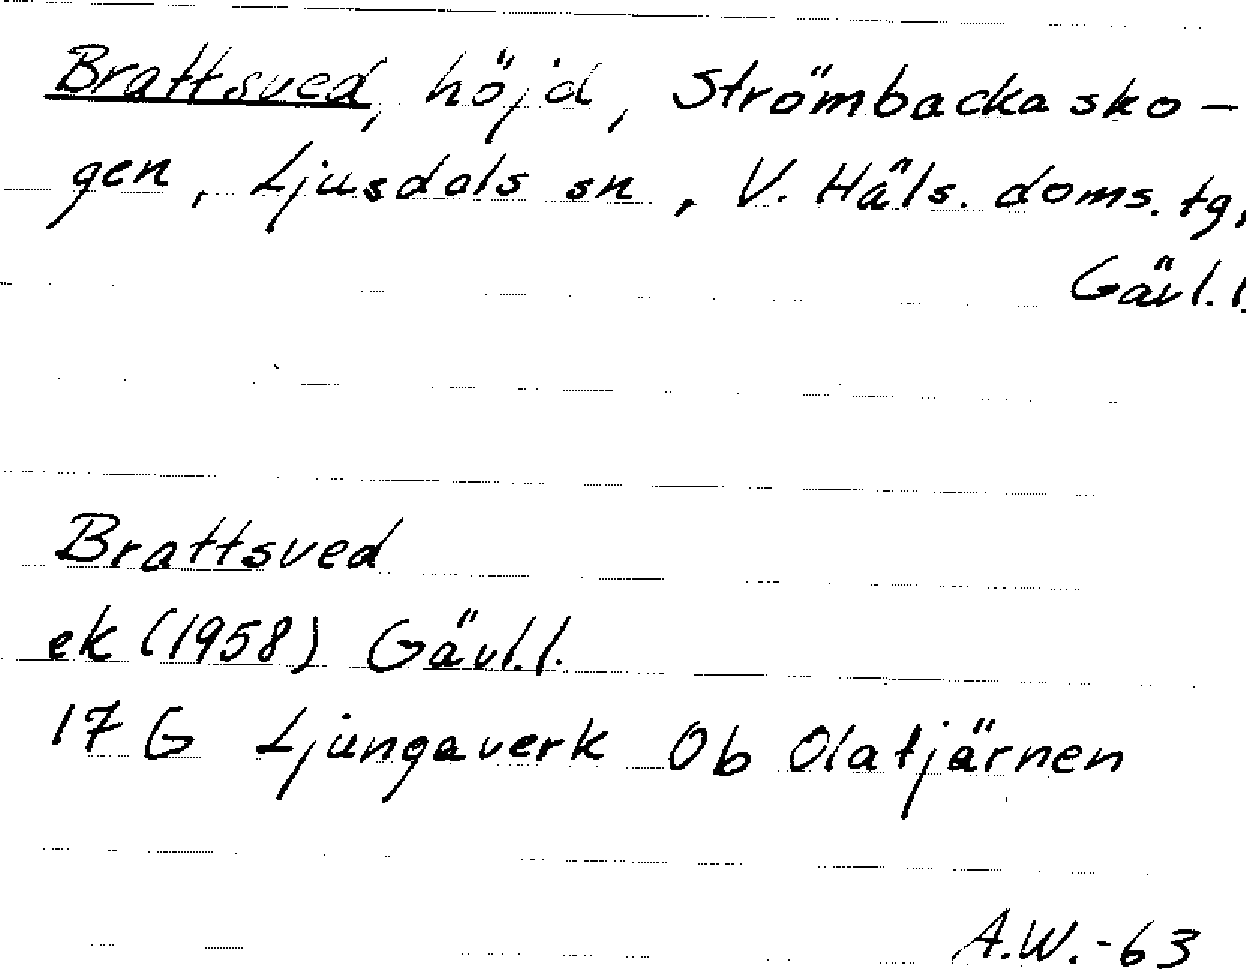 Brattsved, höjd, Strömbackasko-
gen, Ljusdals sn, V. Häls. doms. tg,
Gävl. l.
Brattsved
ek (1958) Gävl. l.
17 G Ljungaverk Ob Olatjärnen
A.W.-63